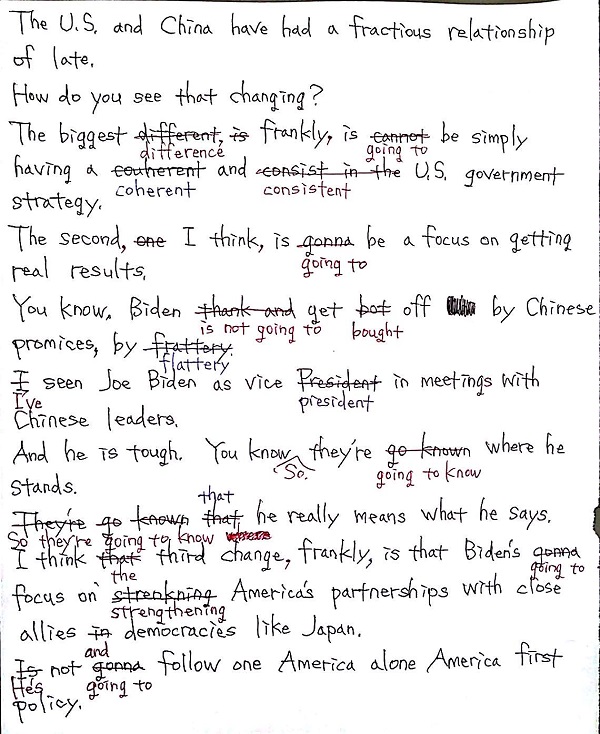 The U.S. and China have had a fractious relationship
of late.
How do you see that changing?
The biggest different, is frankly, is cannot be simply
difference going to
having a couherent and consist in the U.S. government
coherent consistent
strategy.
The second, one I think, is gonna be a focus on getting
going to
real results.
You know, Biden thank and get bot off by Chinese
is not going to bought
promices, by frattery.
flattery
I seen Joe Biden as vice President in meetings with
I've president
Chinese leaders.
And he is tough. You know, they're go known where he
So. going to know
stands.
that
They're go known that he really means what he says.
So they're going to know where
I think that third change, frankly, is that Biden's gonna
the going to
focus on strenkning America's partnerships with close
strengthening
allies in democracies like Japan.
and
Is not gonna follow one America alone America first
He's going to
policy.